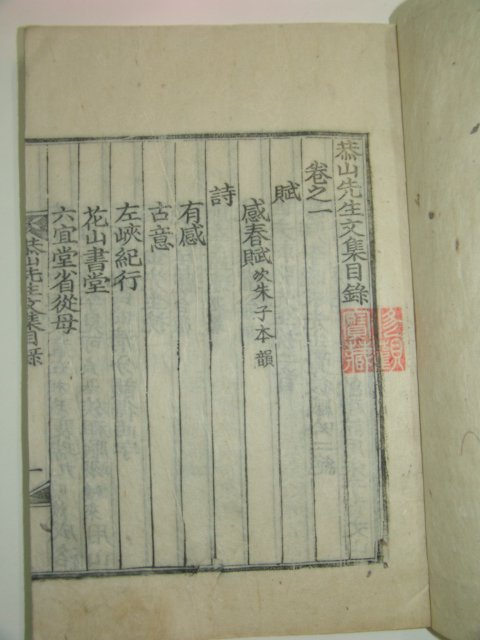 恭山先生文集目錄
卷之一
賦
感春賦 次朱子本韻
詩
有感
古意
左峽紀行
花山書堂
六宜堂省從母
恭山先生文集目錄
寶藏